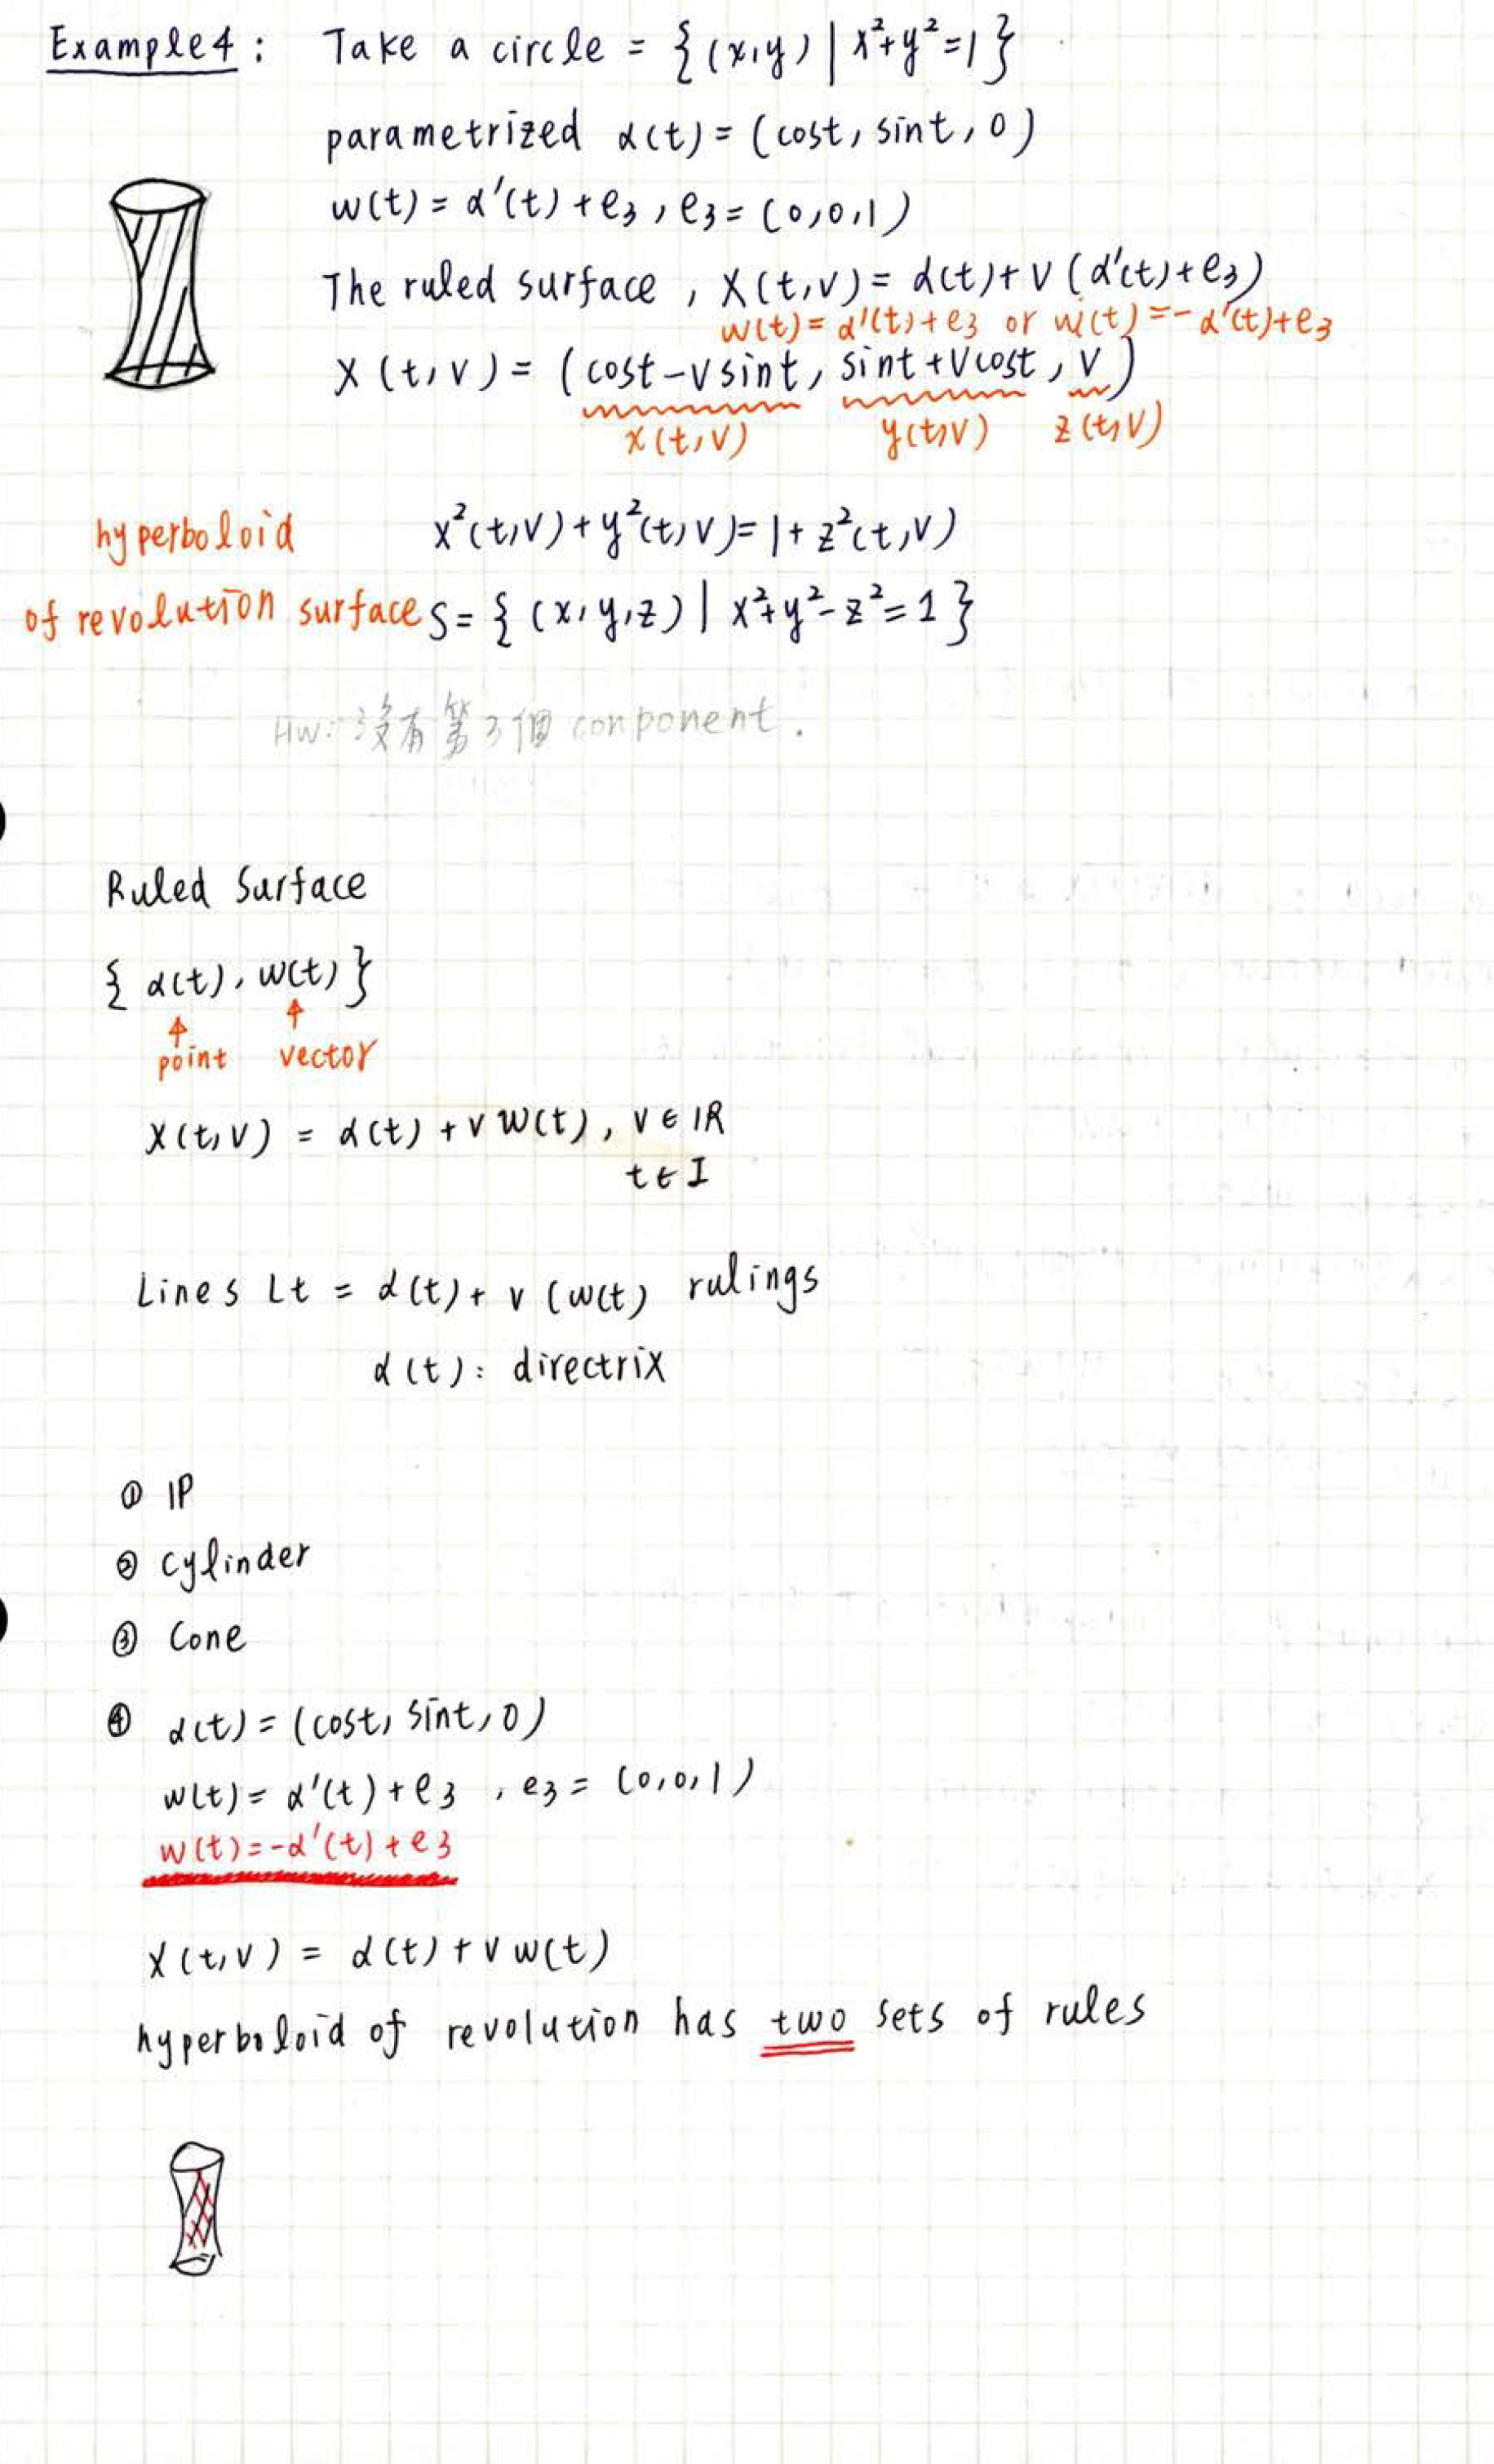 Example4: Take a circle = {(x,y) | x²+y²=1}
parametrized α(t) = (cost, sint, 0)
w(t) = α'(t) + e₃, e₃ = (0,0,1)
The ruled surface, X(t,v) = α(t) + v(α'(t)+e₃)
w(t) = α'(t)+e₃ or w(t) = -α'(t)+e₃
X(t,v) = (cost-vsint, sint+vcost, v)
x(t,v) y(t,v) z(t,v)
hyperboloid x²(t,v)+y²(t,v)=1+z²(t,v)
of revolution surface S = {(x,y,z) | x²+y²-z²=1}
HW: 沒有第3個 conponent.
Ruled Surface
{α(t), w(t)}
↑ ↑
point vector
X(t,v) = α(t) + v w(t), v ∈ ℝ
t ∈ I
Lines Lt = α(t) + v (w(t) rulings
α(t): directrix
① ℙ
② cylinder
③ Cone
④ α(t) = (cost, sint, 0)
w(t) = α'(t) + e₃, e₃ = (0,0,1)
w(t) = -α'(t) + e₃
X(t,v) = α(t) + v w(t)
hyperboloid of revolution has two sets of rules